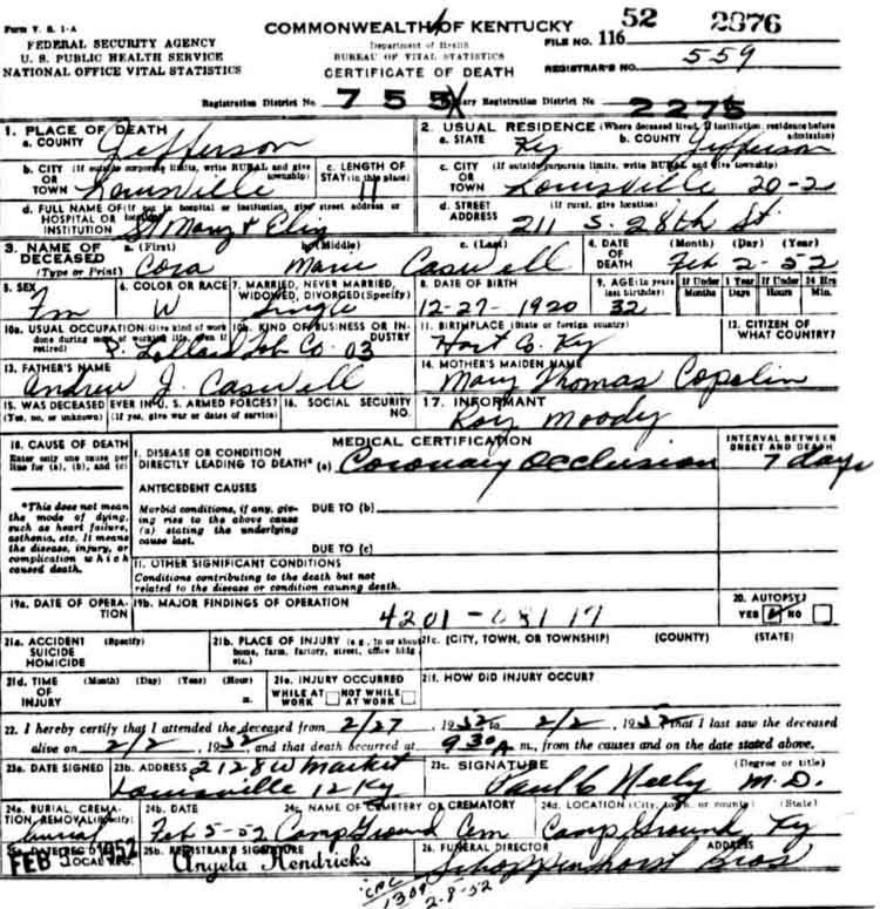 Form V. S. 1-A
FEDERAL SECURITY AGENCY
U. S. PUBLIC HEALTH SERVICE
NATIONAL OFFICE VITAL STATISTICS
COMMONWEALTH OF KENTUCKY
Department of Health
BUREAU OF VITAL STATISTICS
CERTIFICATE OF DEATH
FILE NO. 116 52 2076
REGISTRAR'S NO. 559
Registration District No. 755 Primary Registration District No. 2275
1. PLACE OF DEATH
a. COUNTY Jefferson
2. USUAL RESIDENCE (Where deceased lived. If institution: residence before admission)
a. STATE Ky b. COUNTY Jefferson
b. CITY (If outside corporate limits, write RURAL and give township) OR TOWN Louisville
c. LENGTH OF STAY (in this place) 11
c. CITY (If outside corporate limits, write RURAL and give township) OR TOWN Louisville 20-2
d. FULL NAME OF (If not in hospital or institution, give street address or location) HOSPITAL OR INSTITUTION St Mary & Eliz
d. STREET ADDRESS (If rural, give location) 211 S. 28th St.
3. NAME OF DECEASED (Type or Print)
a. (First) Cora b. (Middle) Marie c. (Last) Caswell
4. DATE OF DEATH (Month) (Day) (Year) Feb 2-52
5. SEX Fm
6. COLOR OR RACE W
7. MARRIED, NEVER MARRIED, WIDOWED, DIVORCED (Specify) Single
8. DATE OF BIRTH 12-27-1920
9. AGE (In years last birthday) 32
If Under 1 Year Months Days
If Under 24 Hrs Hours Min.
10a. USUAL OCCUPATION (Give kind of work done during most of working life, even if retired)
10b. KIND OF BUSINESS OR INDUSTRY
P. Lollard Tob Co. 03
11. BIRTHPLACE (State or foreign country) Hart Co. Ky
12. CITIZEN OF WHAT COUNTRY?
13. FATHER'S NAME Andrew J. Caswell
14. MOTHER'S MAIDEN NAME Mary Thomas Copelin
15. WAS DECEASED EVER IN U. S. ARMED FORCES? (Yes, no, or unknown) (If yes, give war or dates of service)
16. SOCIAL SECURITY NO.
17. INFORMANT Roy Moody
18. CAUSE OF DEATH
Enter only one cause per line for (a), (b), and (c)
MEDICAL CERTIFICATION
INTERVAL BETWEEN ONSET AND DEATH
I. DISEASE OR CONDITION DIRECTLY LEADING TO DEATH* (a) Coronary Occlusion 7 days
*This does not mean the mode of dying, such as heart failure, asthenia, etc. It means the disease, injury, or complication which caused death.
ANTECEDENT CAUSES
Morbid conditions, if any, giving rise to the above cause (a) stating the underlying cause last.
DUE TO (b)
DUE TO (c)
11. OTHER SIGNIFICANT CONDITIONS
Conditions contributing to the death but not related to the disease or condition causing death.
19a. DATE OF OPERATION
19b. MAJOR FINDINGS OF OPERATION
4201-08117
20. AUTOPSY? YES NO
21a. ACCIDENT SUICIDE HOMICIDE (Specify)
21b. PLACE OF INJURY (e.g., in or about home, farm, factory, street, office bldg., etc.)
21c. (CITY, TOWN, OR TOWNSHIP) (COUNTY) (STATE)
21d. TIME OF INJURY (Month) (Day) (Year) (Hour) m.
21e. INJURY OCCURRED WHILE AT WORK NOT WHILE AT WORK
21f. HOW DID INJURY OCCUR?
22. I hereby certify that I attended the deceased from 2/27, 1952 to 2/2, 1952 that I last saw the deceased
alive on 2/2, 1952, and that death occurred at 9 30 A m., from the causes and on the date stated above.
23a. DATE SIGNED
23b. ADDRESS 2128 W Market Louisville 12 Ky
23c. SIGNATURE (Degree or title) Paul C Neely M.D.
24a. BURIAL, CREMATION, REMOVAL (Specify) burial
24b. DATE Feb 5-52
24c. NAME OF CEMETERY OR CREMATORY Camp Ground Cem
24d. LOCATION (City, town, or county) (State) Camp Ground Ky
25a. DATE REC'D BY LOCAL REG. FEB 5 1952
25b. REGISTRAR'S SIGNATURE Angela Hendricks
26. FUNERAL DIRECTOR ADDRESS Schoppenhorst Bros
CPC
1309 2-8-52